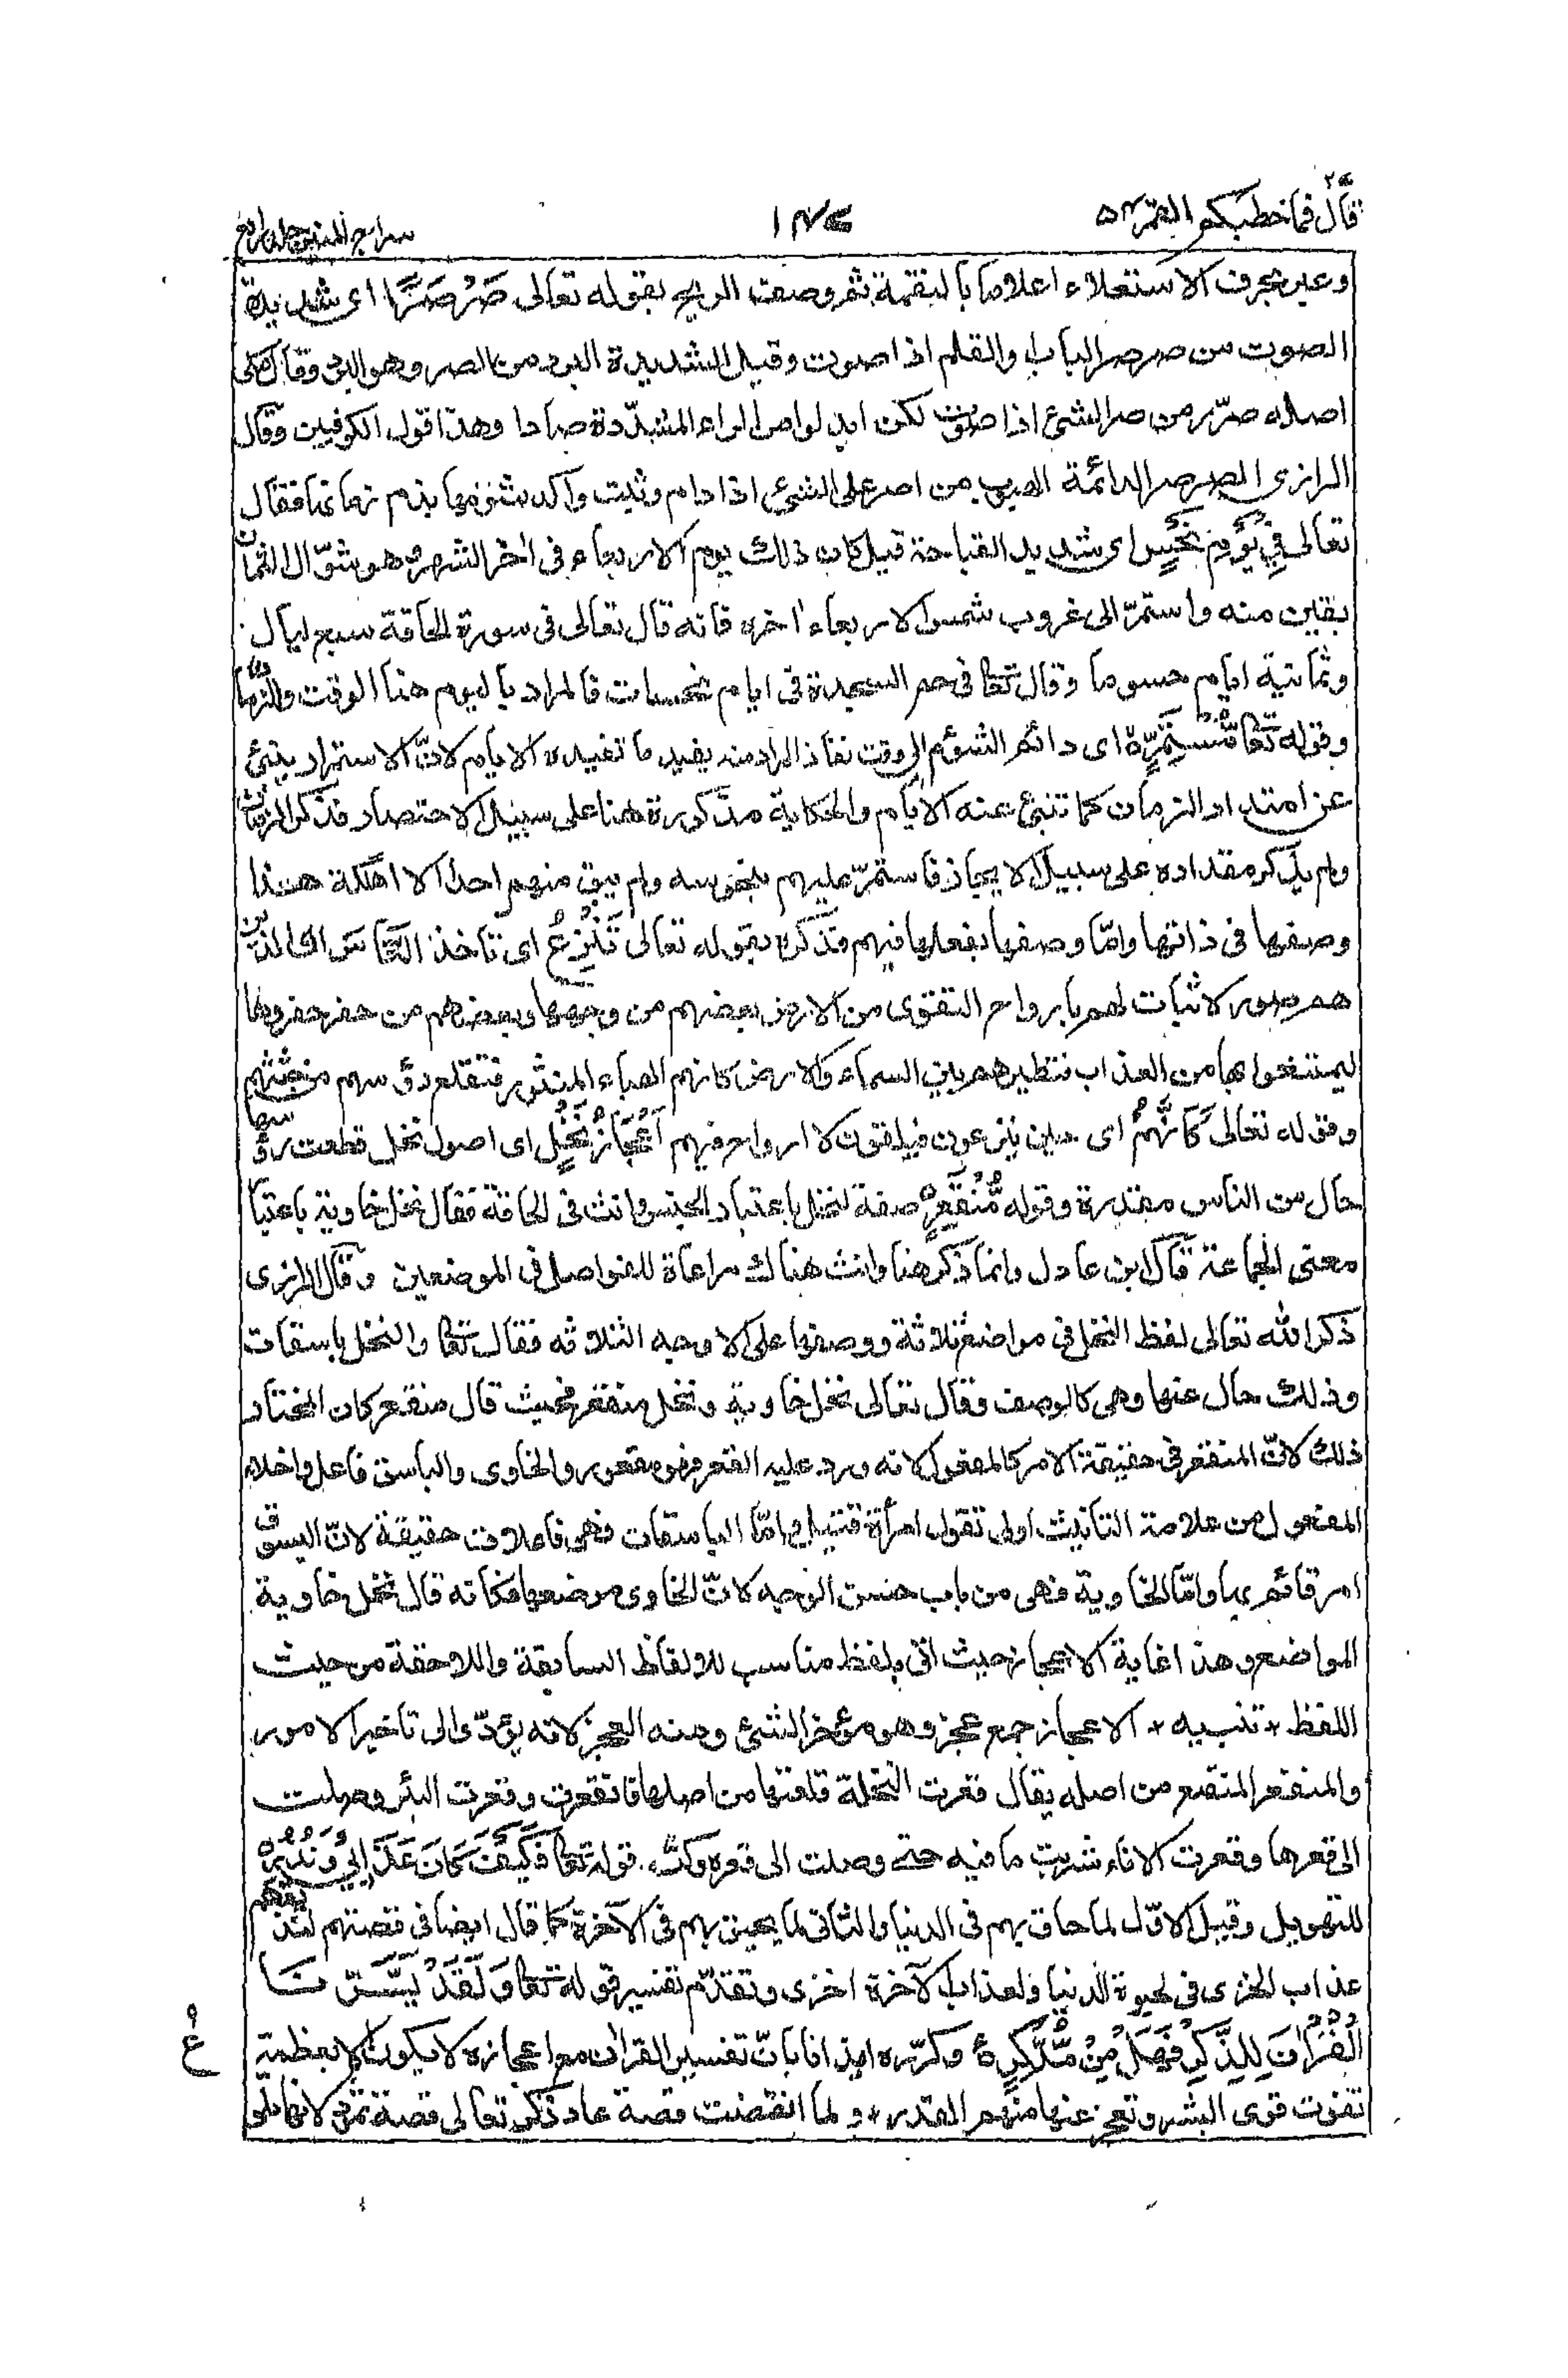 قال فما خطبكم ٢٧ القمر ٥٤
١٧٤
سراج المنير جلد رابع
وعبر بحرف الاستعلاء اعلاما بالنقمة ثم وصف الريح بقوله تعالى صَرْصَرًا اى شديدة
الصوت من صرصر الباب والقلم اذا صوت وقيل الشديدة البرد من الصر وهو البرد وقال مكى
اصله صرّر من صر الشئ اذا صوت لكن ابدلوا من الراء المشدّدة صادا وهذا قول الكوفيين وقال
الرازى الصرصر الدائمة الهبوب من اصر على الشئ اذا دام وثبت واكد شؤمها بذم زمانها فقال
تعالى فِىْ يَوْمِ نَحْسٍ اى شديد القباحة قيل كان ذلك يوم الاربعاء فى اٰخر الشهر وهو شوّال لثمان
بقين منه واستمرّ الى غروب شمس الاربعاء اٰخره فانه قال تعالى فى سورة الحاقة سبع ليال
وثمانية ايام حسوما وقال تعا فى حم السجدة فى ايام نحسات فالمراد باليوم هنا الوقت والزمان
وقوله تعا مُّسْتَمِرٍّ اى دائم الشؤم الى وقت نفاذ المراد منه يفيد ما تفيده الايام لانّ الاستمرار ينبئ
عن امتداد الزمان كما تنبئ عنه الايام والحكاية مذكورة هنا على سبيل الاختصار فذكر الزمان
ولم يذكر مقداره على سبيل الايجاز فاستمرّ عليهم بنحوسه ولم يبق منهم احدا الا اهلكه هذا
وصفها فى ذاتها وامّا وصفها بفعلها فيهم فذكره بقوله تعالى تَنْزِعُ اى تاخذ النَّاسَ الذين
هم صور لا ثبات لهم بارواح التقوى من الارض بعضهم من وجهها وبعضهم من حفر حفروها
ليمتنعوا بها من العذاب فتطيرهم بين السماء والارض كانهم الهباء المنثور فتقلع رؤسهم من جثثهم
وقوله تعالى كَاَنَّهُمْ اى حين ينزعون فيلقون لا ارواح فيهم اَعْجَازُ نَخْلٍ اى اصول نخل قطعت رؤسها
حال من الناس مقدرة وقوله مُّنْقَعِرٍ صفة لنخل باعتبار الجنس وانث فى الحاقة فقال نخل خاوية باعتبار
معنى الجماعة قال ابن عادل وانما ذكر هنا وانث هناك مراعاة للفواصل فى الموضعين وقال الرازى
ذكر الله تعالى لفظ النخل فى مواضع ثلاثة ووصفها على الاوجه الثلاثه فقال تعا والنخل باسقات
وذلك حال عنها وهى كالوصف وقال تعالى نخل خاوية ونخل منقعر فحيث قال منقعر كان المختار
ذلك لانّ المنقعر فى حقيقة الامر كالمفعول لانه ورد عليه القعر فهو مقعور والخاوى والباسق فاعل واخلاء
المفعول من علامة التانيث اولى تقول امرأة قتيل وامّا الباسقات فهى فاعلات حقيقة لانّ البسوق
امر قائم بها وامّا الخاوية فهى من باب حسن الوجه لانّ الخاوى موضعها فكانه قال نخل خاوية
المواضع وهذا غاية الاعجاز حيث اتى بلفظ مناسب للالفاظ السابقة واللاحقة من حيث
اللفظ + تنبيه + الاعجاز جمع عجز وهو مؤخر الشئ ومنه العجز لانه يؤدّى الى تاخير الامور
والمنقعر المنقعر من اصله يقال قعرت النخلة قلعتها من اصلها فانقعرت وقعرت البئر وصلت
الى قعرها وقعرت الاناء شربت ما فيه حتى وصلت الى قعره وكرّر قوله تعا فَكَيْفَ كَانَ عَذَابِىْ وَنُذُرِ
للتهويل وقيل الاوّل لما حاق بهم فى الدنيا والثانى لما يحيق بهم فى الآخرة كما قال ايضا فى قصتهم لنذيقهم
عذاب الخزى فى الحيوة الدنيا ولعذاب الآخرة اخزى وتقدّم تفسير قوله تعا وَلَقَدْ يَسَّرْنَا
الْقُرْاٰنَ لِلذِّكْرِ فَهَلْ مِنْ مُّدَّكِرٍ وكرّره ايذانا بانّ تفسير القراٰن مع اعجازه لا يكون الا بعظمة
تفوت قوى البشر وتعجز عنها منهم القدر + و لما انقضت قصة عاد ذكر تعالى قصة ثمود لانها تلو
ع